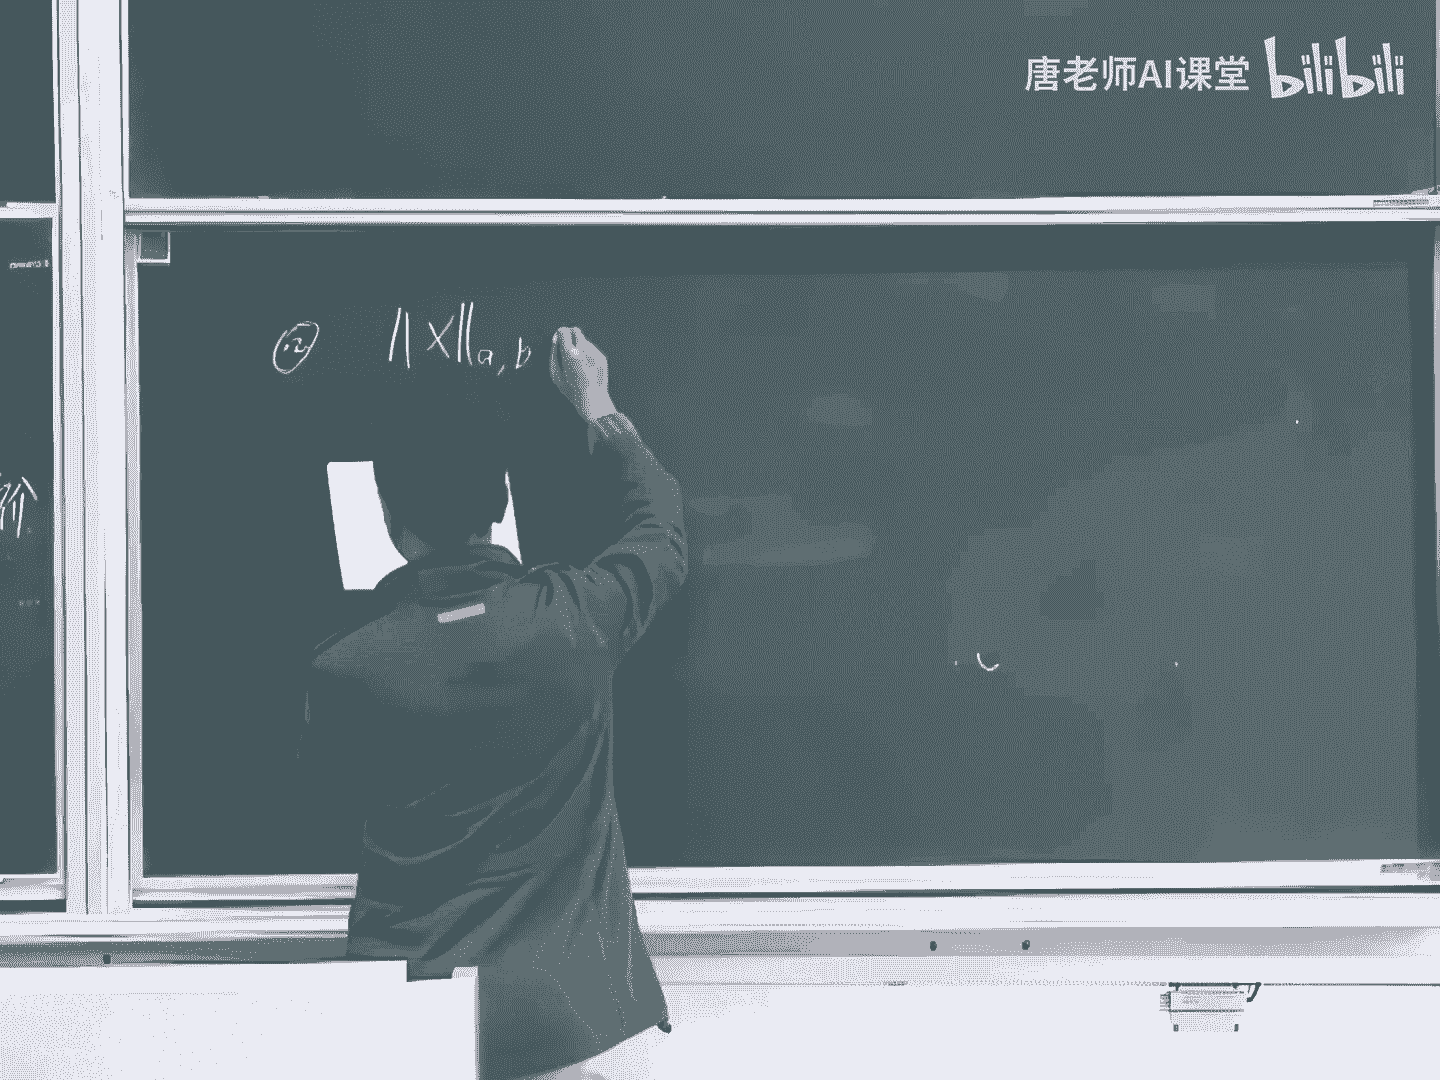 唐老师AI课堂 bilibili
② ‖X‖a,b
价